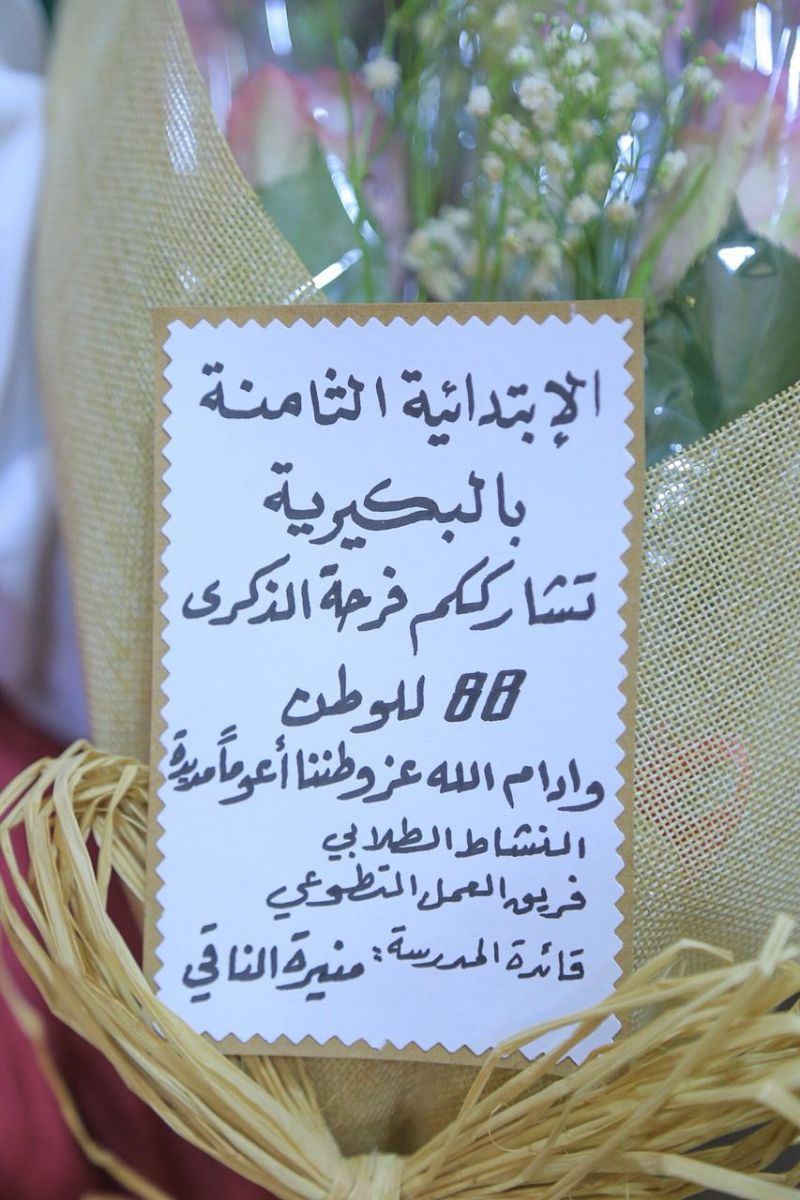 الإبتدائية الثامنة
بالبكيرية
تشارككم فرحة الذكرى
88 للوطن
وادام الله عز وطننا أعوماً مديدة
النشاط الطلابي
فريق العمل المتطوعي
قائدة المدرسة: منيرة الناقي